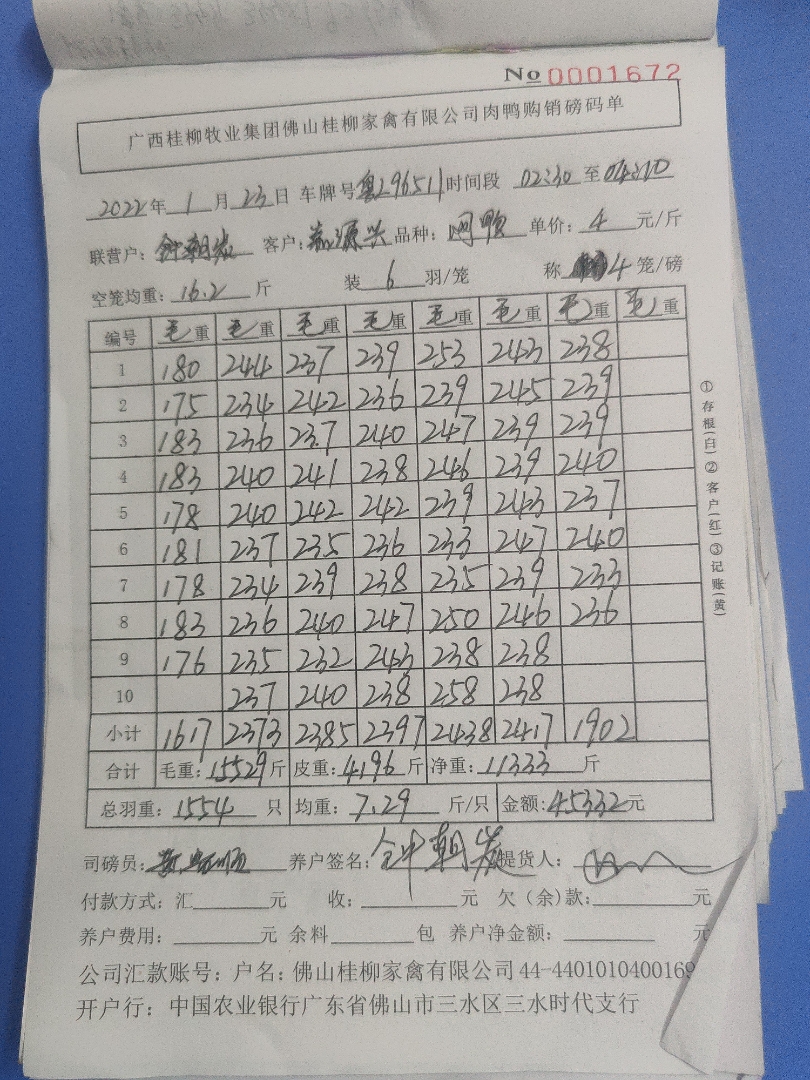 No 0001672
广西桂柳牧业集团佛山桂柳家禽有限公司肉鸭购销磅码单
2022年 1 月 23 日 车牌号 粤L96511 时间段 02:30 至 04:10
联营户: 钟朝发 客户: 源兴 品种: 单价: 4 元/斤
空笼均重: 16.2 斤 装 6 羽/笼 称 4 笼/磅
编号 毛重 毛重 毛重 毛重 毛重 毛重 毛重 毛重
1 180 244 237 239 253 243 238
2 175 234 242 236 239 245 239
3 183 236 237 240 247 239 239
4 183 240 241 238 246 239 240
5 178 240 242 242 239 243 237
6 181 237 235 236 233 247 240
7 178 234 239 238 235 239 233
8 183 236 240 247 250 246 236
9 176 235 232 243 238 238
10 237 240 238 258 238
小计 1617 2373 2385 2397 2438 2417 1902
合计 毛重: 15529 斤 皮重: 4196 斤 净重: 11333 斤
总羽重: 1554 只 均重: 7.29 斤/只 金额: 45332元
司磅员: 养户签名: 钟朝发 提货人:
付款方式: 汇 元 收: 元 欠(余)款: 元
养户费用: 元 余料 包 养户净金额: 元
公司汇款账号: 户名: 佛山桂柳家禽有限公司 44-4401010400169
开户行: 中国农业银行广东省佛山市三水区三水时代支行
①存根(白)②客户(红)③记账(黄)